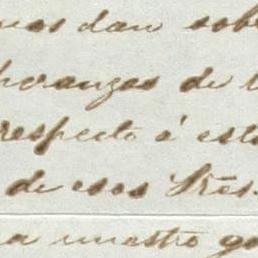 nos dan sob
peranzas de l
respecto á est
de esos Srēs.
a nuestro go